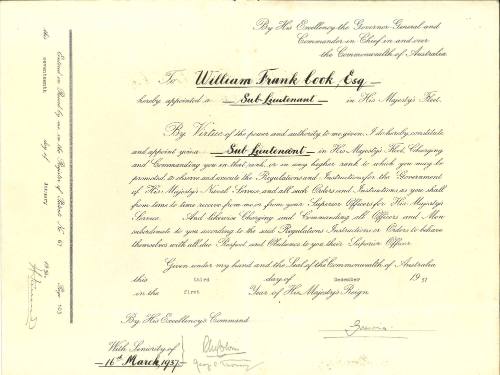 By His Excellency the Governor General and
Commander in Chief in and over
the Commonwealth of Australia
To William Frank Cook, Esq
hereby appointed a Sub-Lieutenant in His Majesty's Fleet.
By Virtue of the power and authority to me given I do hereby constitute
and appoint you a Sub-Lieutenant in His Majesty's Fleet, Charging
and Commanding you in that rank or in any higher rank to which you may be
promoted to observe and execute the Regulations and Instructions for the Government
of His Majesty's Naval Service and all such Orders and Instructions as you shall
from time to time receive from me or from your Superior Officers for His Majesty's
Service. And likewise Charging and Commanding all Officers and Men
subordinate to you according to the said Regulations Instructions or Orders to behave
themselves with all due Respect and Obedience to you their Superior Officer.
Given under my hand and the Seal of the Commonwealth of Australia
this third day of December 1937
in the first Year of His Majesty's Reign
By His Excellency's Command
With Seniority of
16th March, 1937.
Entered on Record by me, in the Register of Patents No 67 Page 163
this seventeenth day of